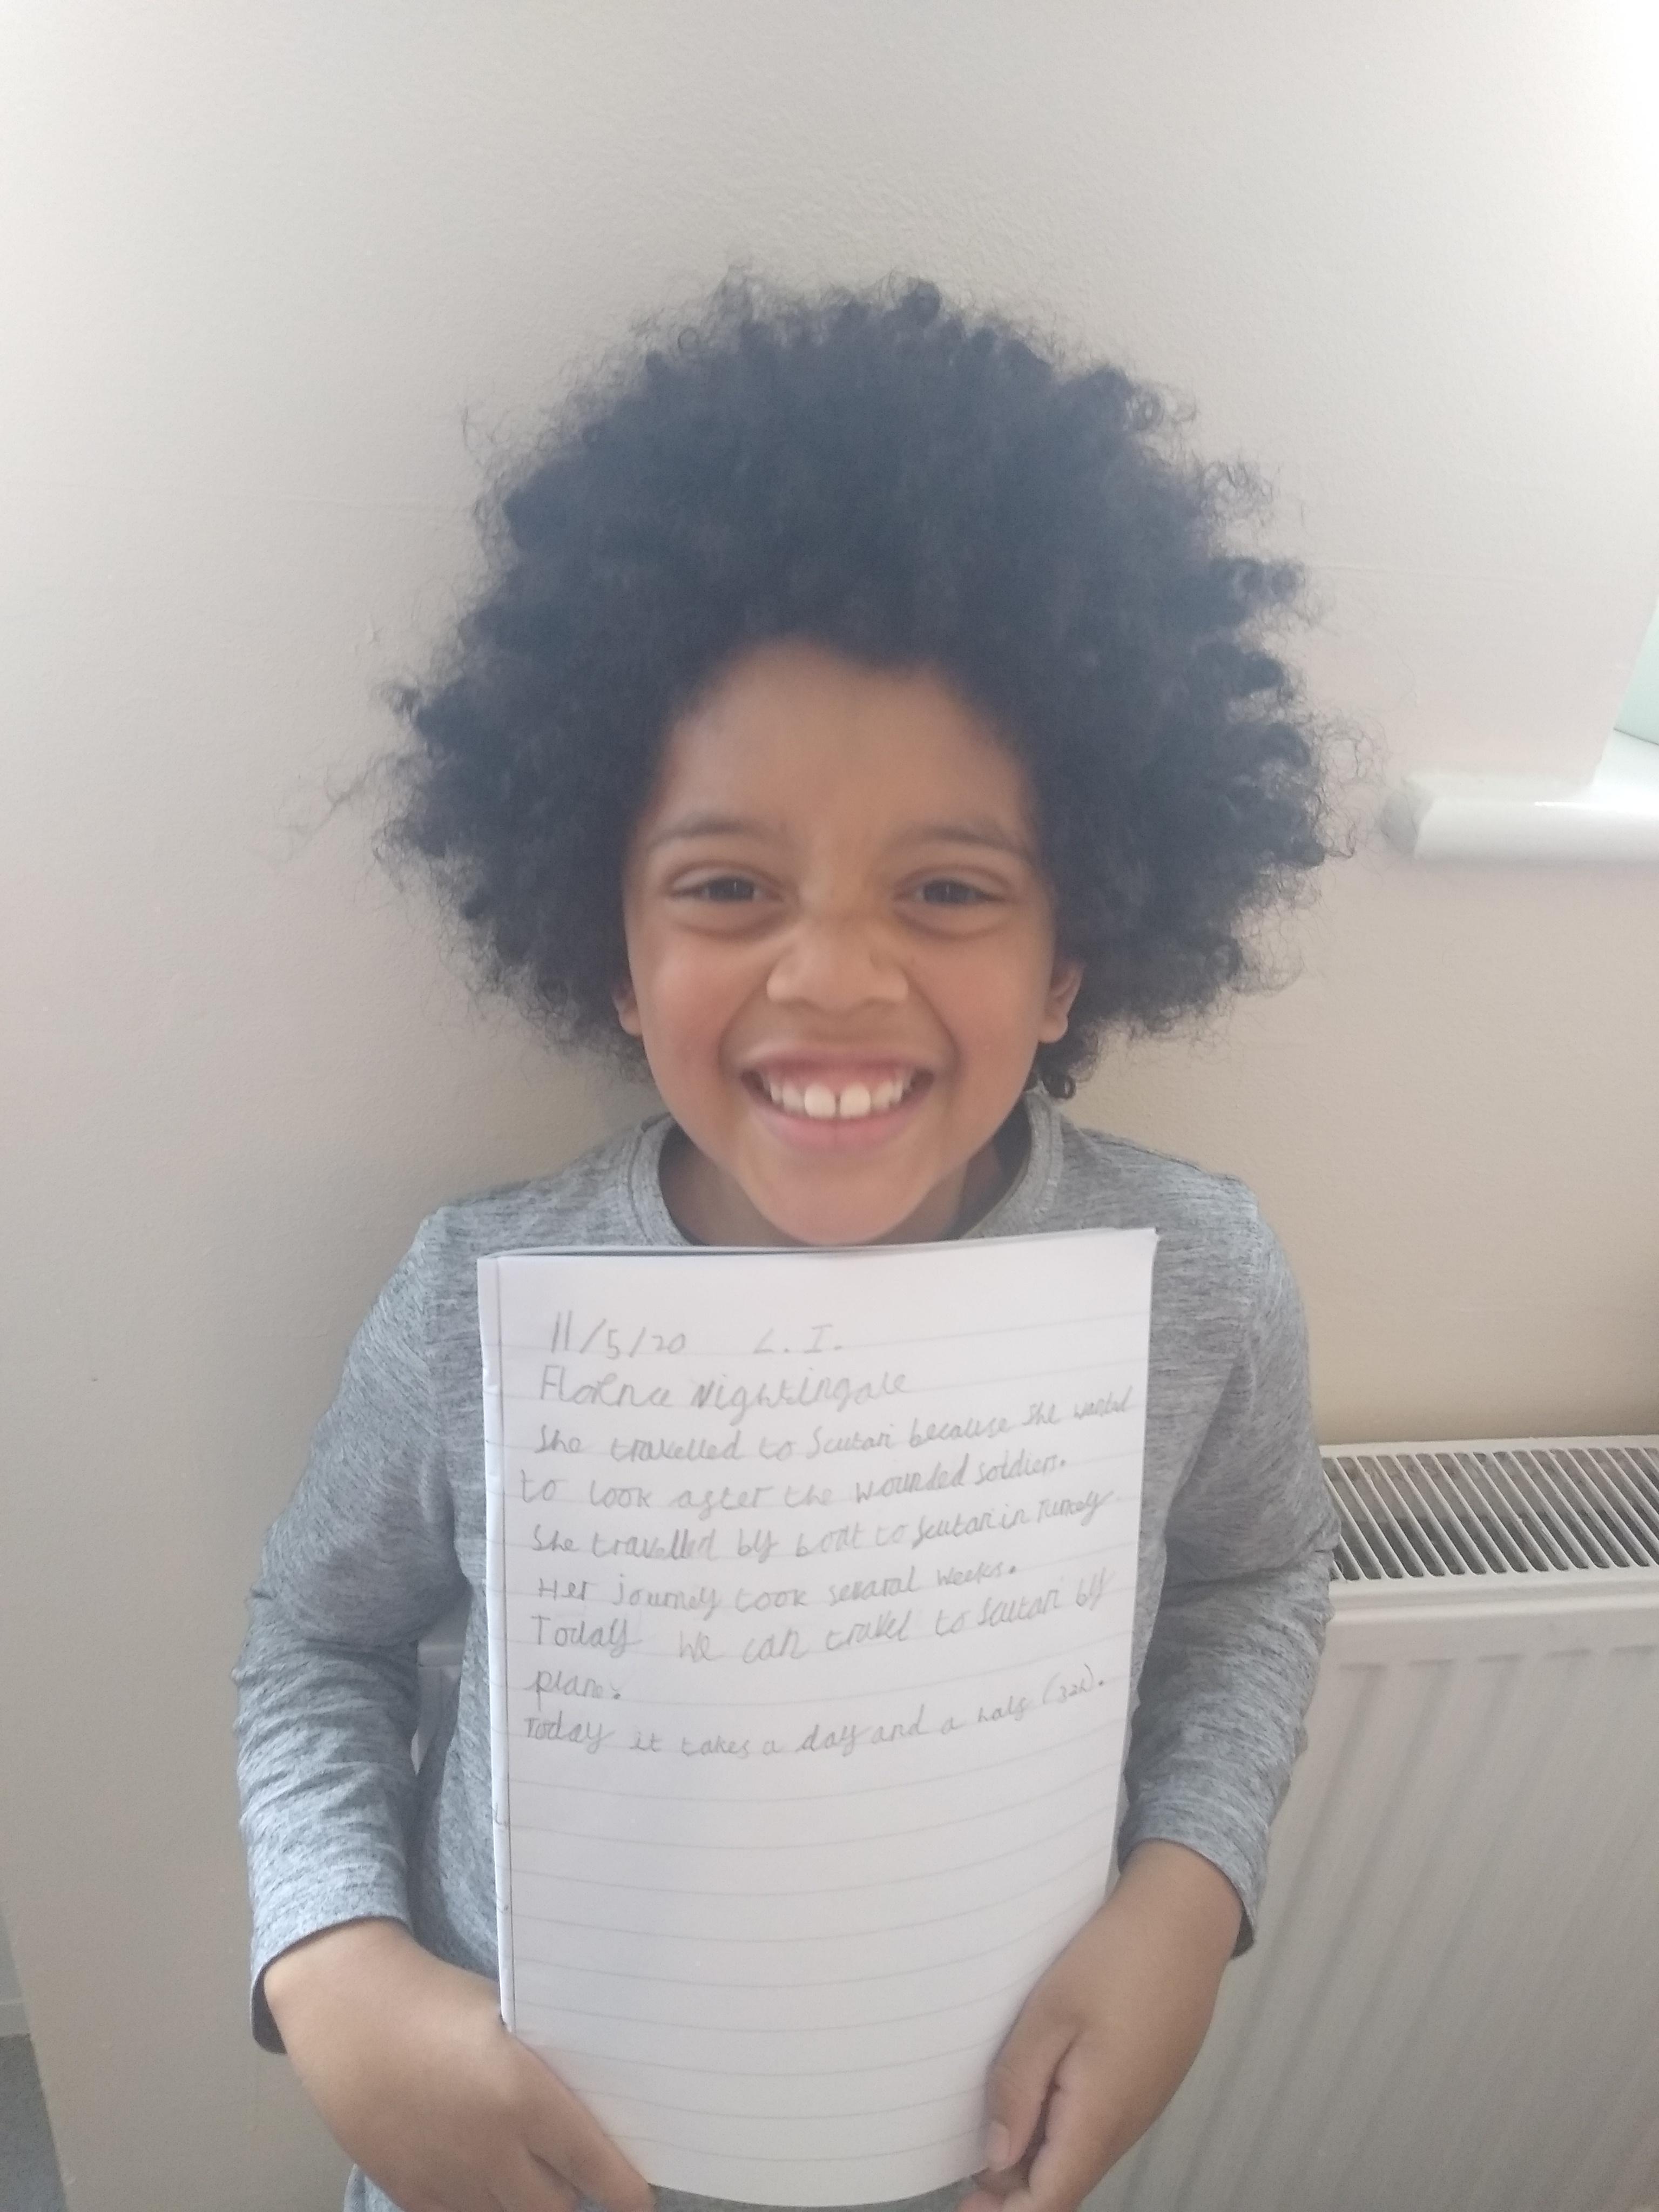 11/5/20 L.I.
Florence Nightingale
She travelled to Scutari because she wanted
to look after the wounded soldiers.
She travelled by boat to Scutari in Turkey
Her journey took several weeks.
Today we can travel to Scutari by
plane.
Today it takes a day and a half (32h).